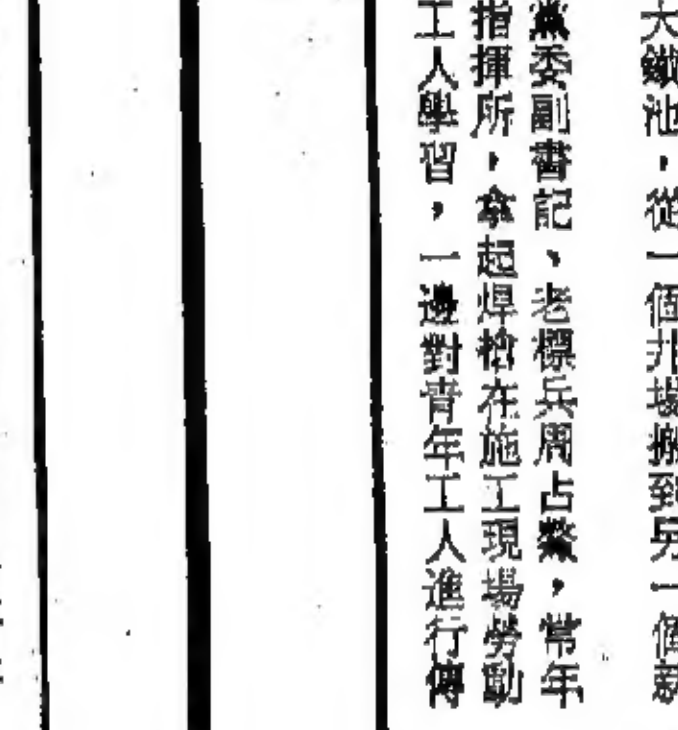 大鐵池，從一個井場搬到另一個新
黨委副書記、老標兵周占鰲，常年
指揮所，拿起焊槍在施工現場勞動
工人學習，一邊對青年工人進行傳